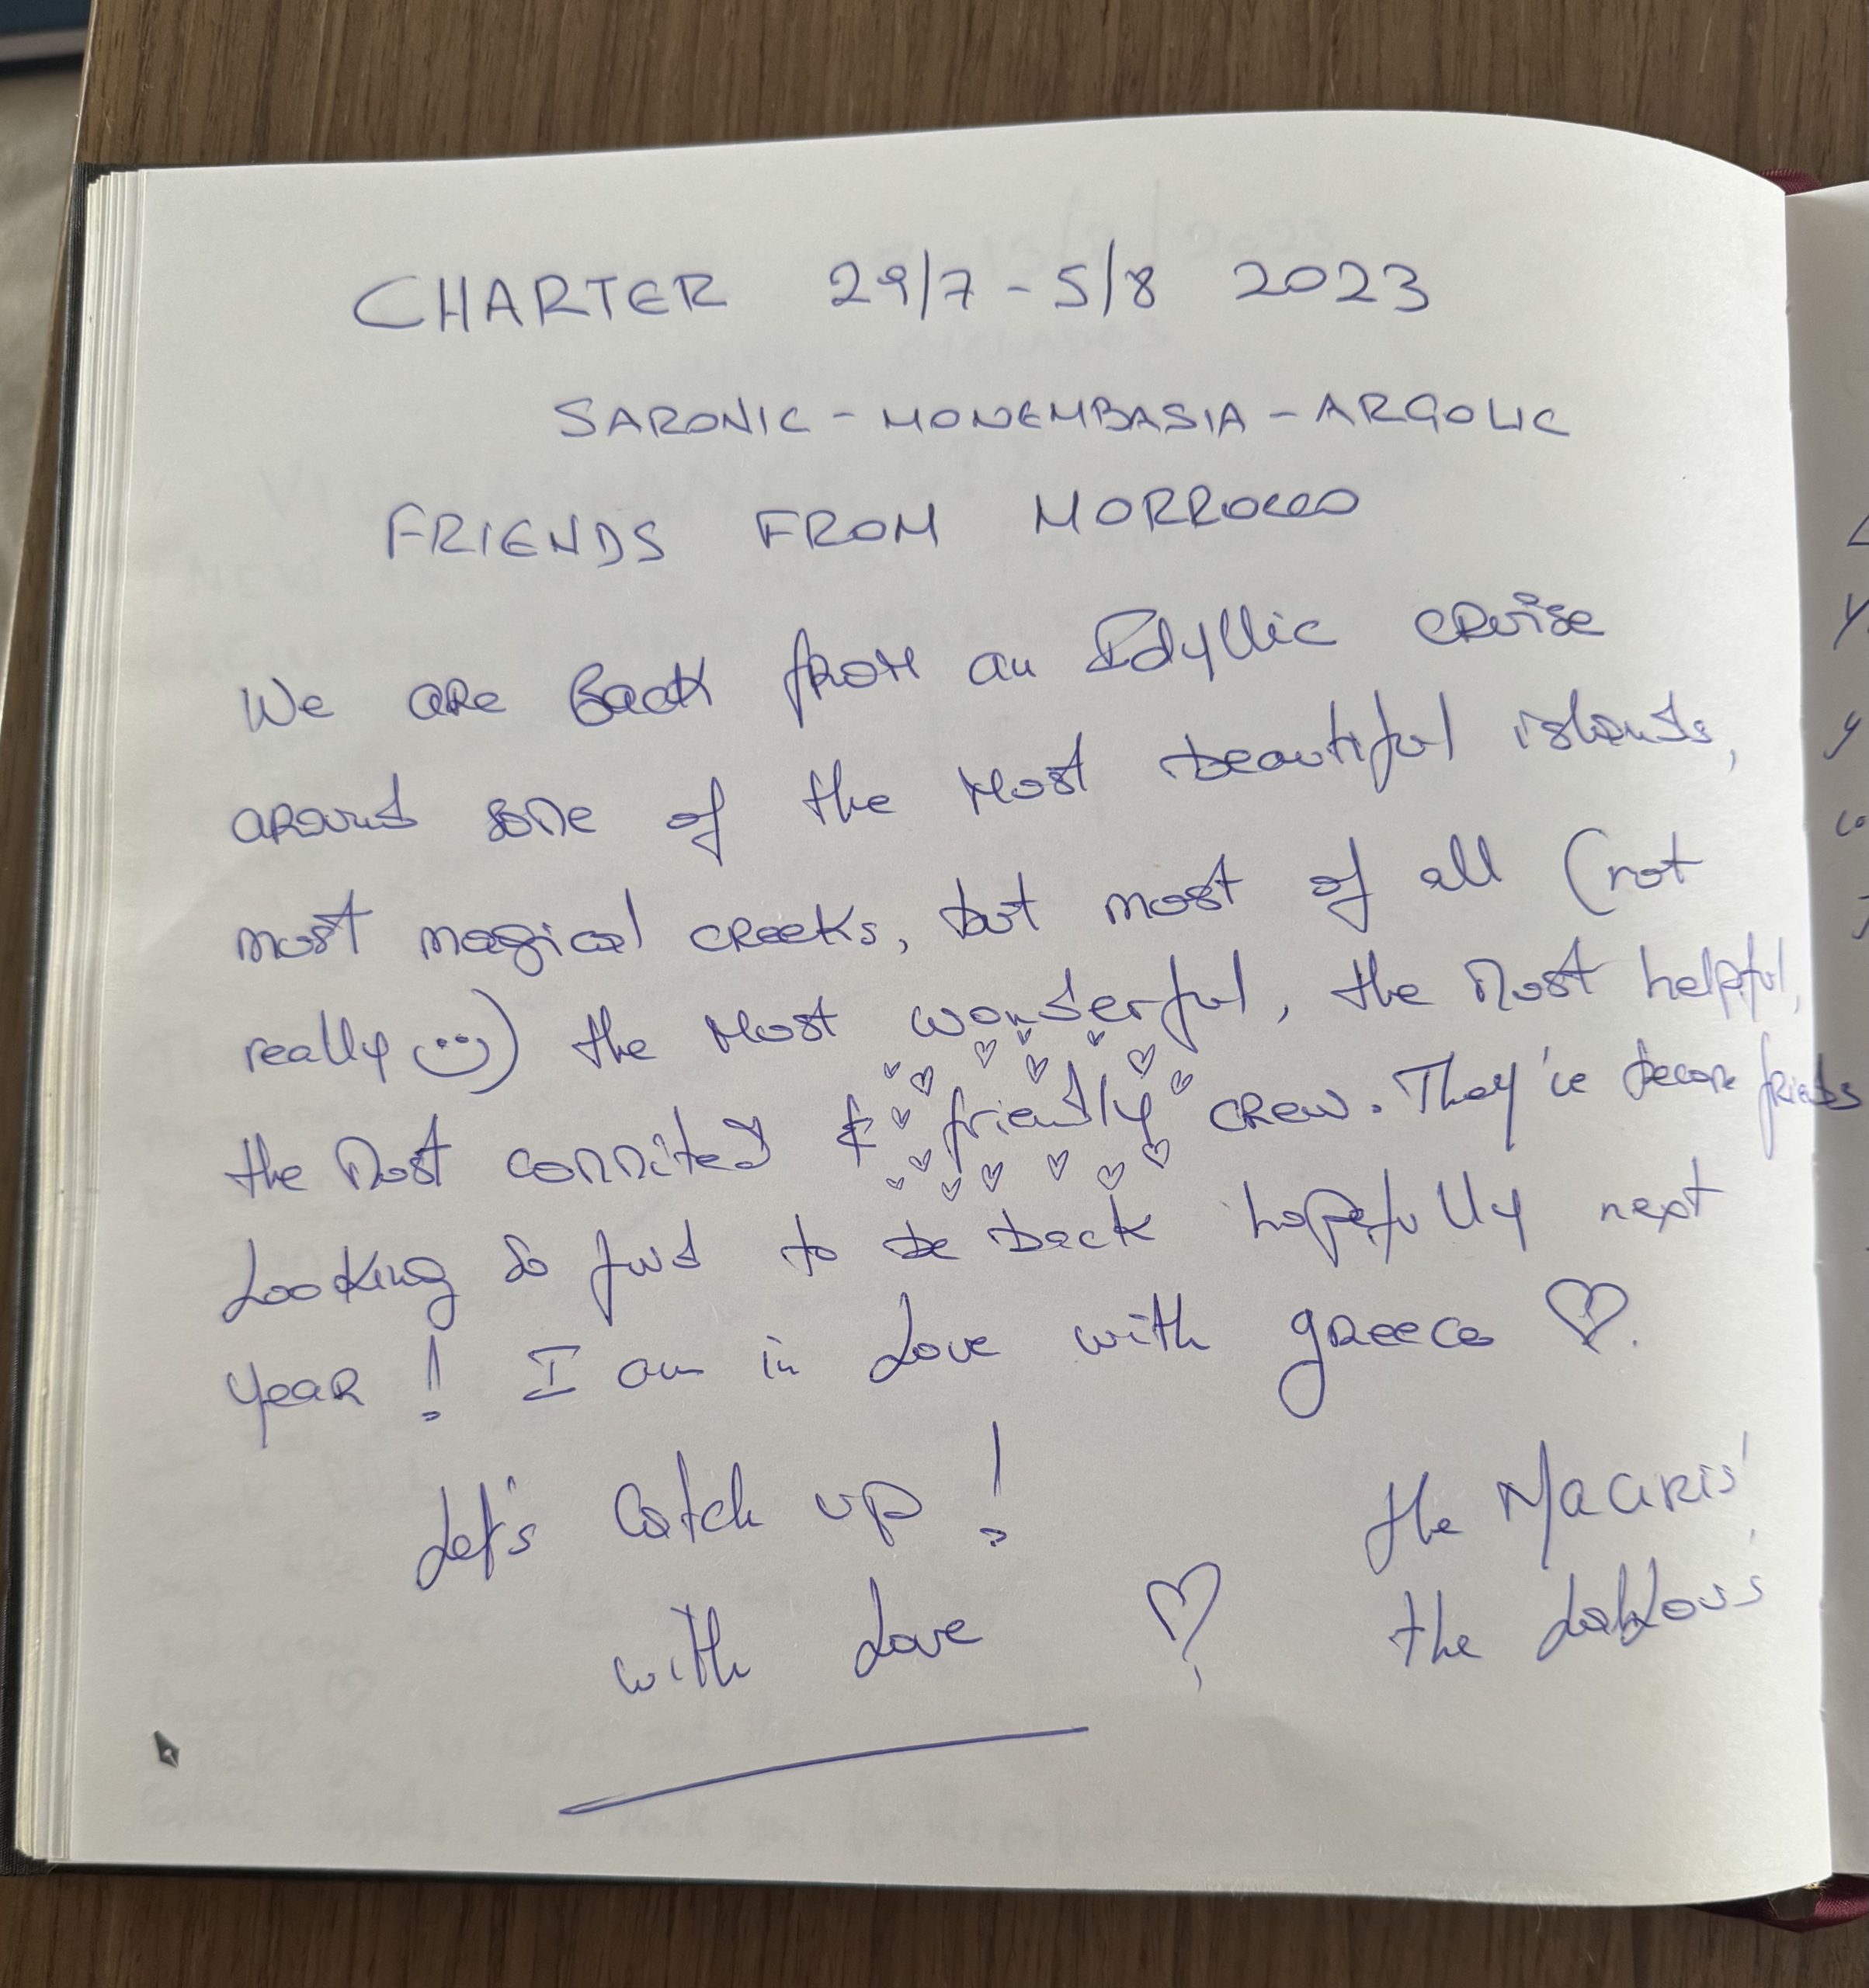 CHARTER 29/7 - 5/8 2023
SARONIC - MONEMBASIA - ARGOLIC
FRIENDS FROM MORROCCO
We are Back from an Idyllic cruise
around some of the most beautiful islands,
most magical creeks, but most of all (not
really :)) the most wonderful, the most helpful,
the most commited & friendly crew. They've become friends
Looking so fwd to be back hopefully next
year! I am in love with greece ♡.
Let's catch up!
the
with love ♡
the